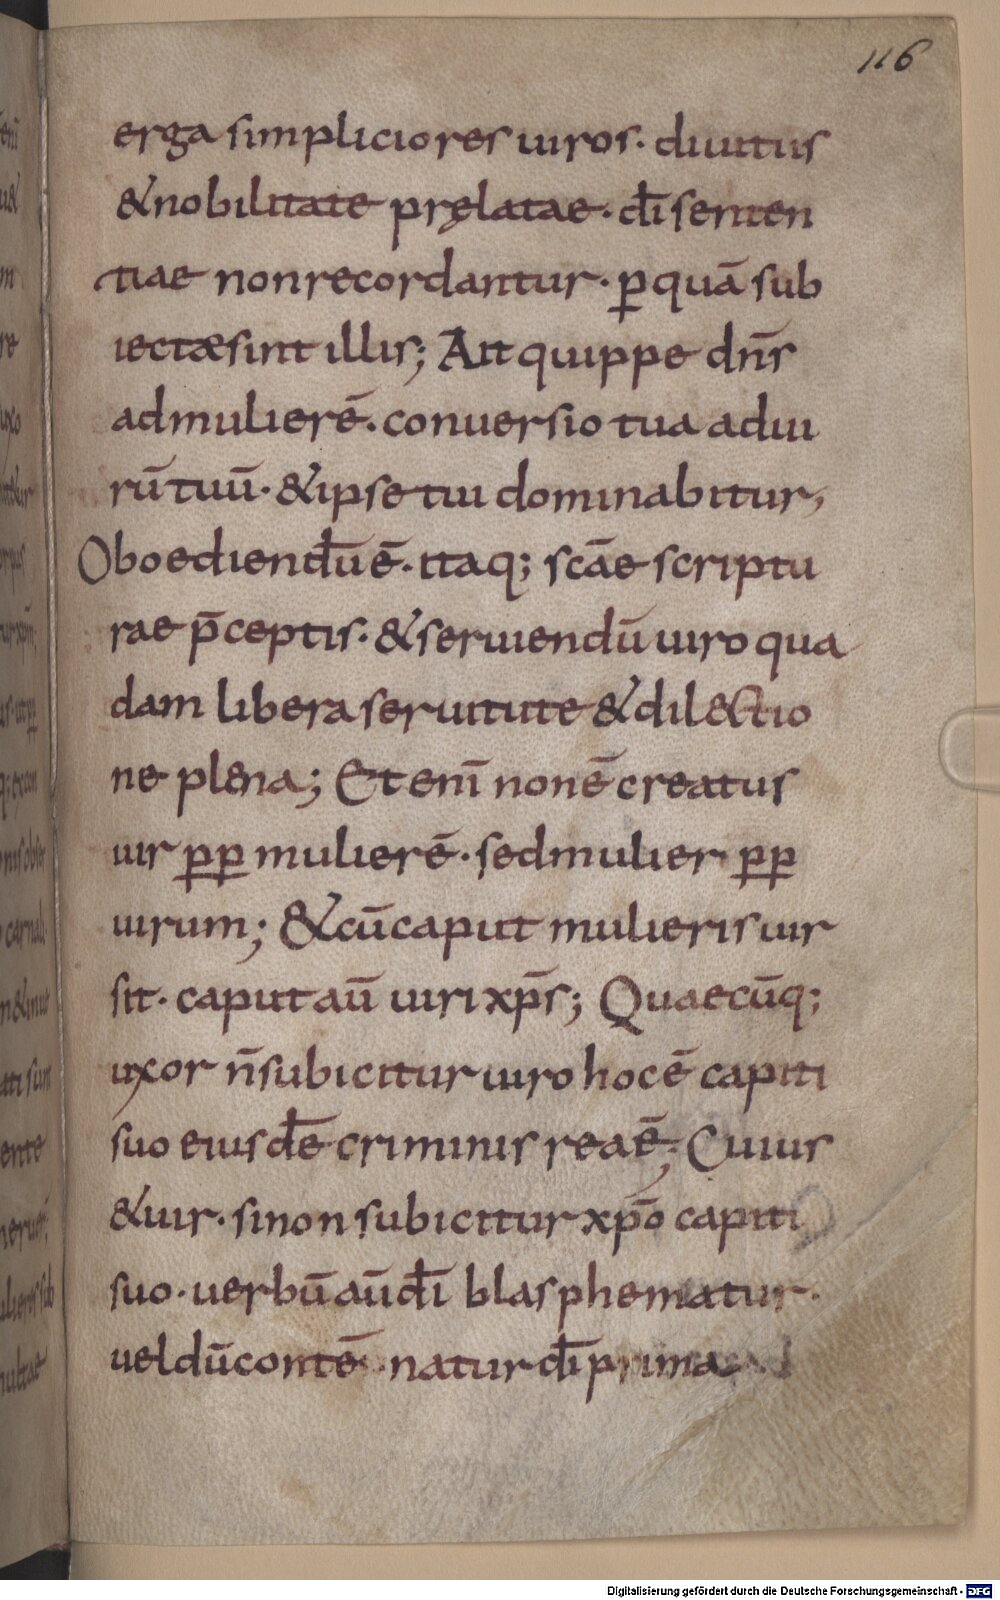 116
erga simpliciores uiros· diuitiis
& nobilitate pręlatae· dī senten
tiae non recordantur· p̱ quā sub
iectæ sint illis; Ait quippe dn̄s
ad mulierē· conuersio tua ad ui
rū tuū· & ipse tui dominabitur,
Oboediendū ē· itaq; scāe scriptu
rae p̄ceptis· & seruiendū uiro qua
dam libera seruitute & dil&ctio
ne plena; Et enī non ē creatus
uir p̱p̱ mulierē· sed mulier p̱p̱
uirum; & cū caput mulieris uir
sit· caput aū uiri xp̄s; Quaecūq;
uxor n̄ subicitur uiro hoc ē capiti
suo eiusdē criminis rea ē; Cuius
& uir· si non subicitur xp̄o capiti
suo· uerbū aū dī blasphematur·
uel dū contē natur dī prima
Digitalisierung gefördert durch die Deutsche Forschungsgemeinschaft - DFG